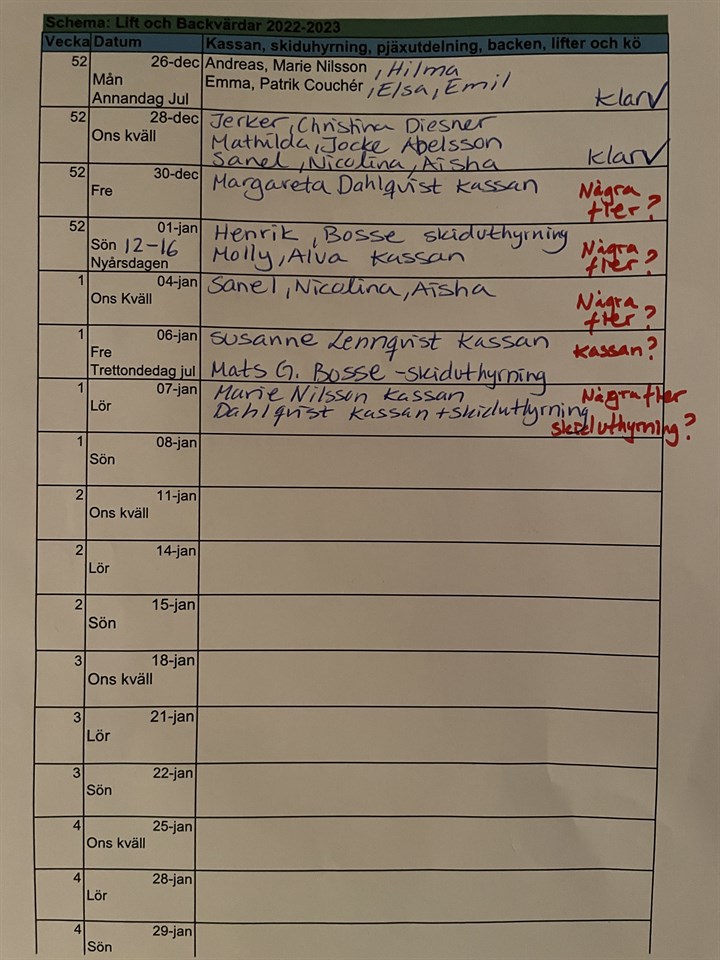 Schema: Lift och Backvärdar 2022-2023
Vecka Datum Kassan, skiduhyrning, pjäxutdelning, backen, lifter och kö
52 26-dec Andreas, Marie Nilsson , Hilma
Mån Emma, Patrik Couchér , Elsa, Emil
Annandag Jul Klar✓
52 28-dec Jerker, Christina Diesner
Ons kväll Mathilda, Jocke Abelsson
Sanel, Nicolina, Aisha Klar✓
52 30-dec Margareta Dahlqvist Kassan Några
Fre fler?
52 01-jan Henrik, Bosse skiduthyrning
Sön 12-16 Molly, Alva Kassan Några
Nyårsdagen fler?
1 04-jan Sanel, Nicolina, Aisha
Ons Kväll Några
fler?
1 06-jan Susanne Lennqvist Kassan
Fre Kassan?
Trettondedag jul Mats G. Bosse - skiduthyrning
1 07-jan Marie Nilsson Kassan Några fler
Lör Dahlqvist Kassan + skiduthyrning
skiduthyrning?
1 08-jan
Sön
2 11-jan
Ons kväll
2 14-jan
Lör
2 15-jan
Sön
3 18-jan
Ons kväll
3 21-jan
Lör
3 22-jan
Sön
4 25-jan
Ons kväll
4 28-jan
Lör
4 29-jan
Sön